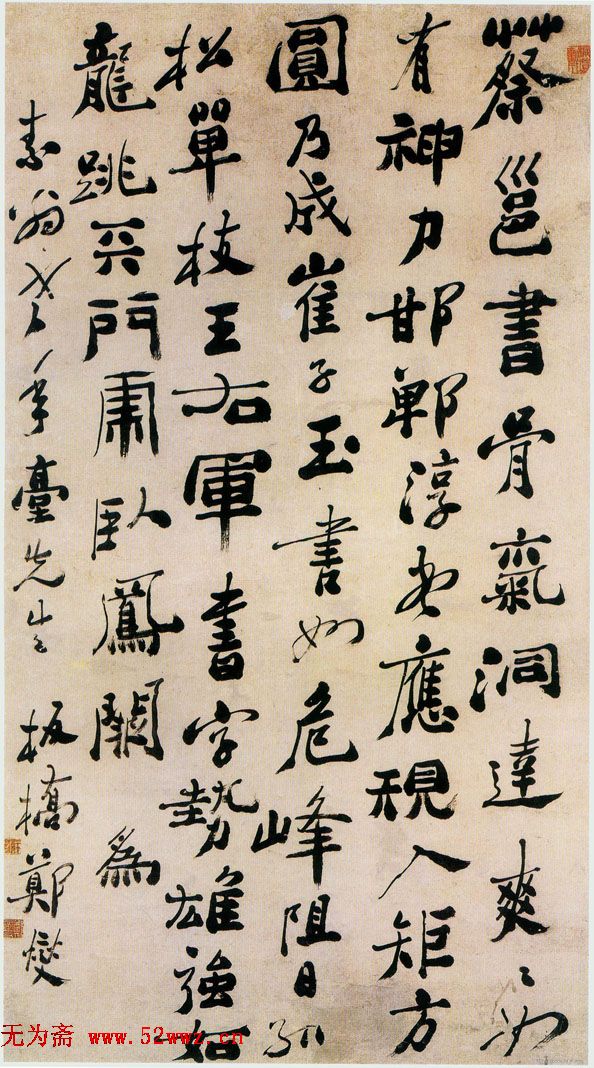 蔡邕書骨氣洞達爽爽如
有神力邯鄲淳書應規入矩方
圓乃成崔子玉書如危峰阻日孤
松單枝王右軍書字勢雄強如
龍跳天門虎臥鳳闕 為
素翁老年臺先生 板橋鄭燮
无为斋 www.52wwz.cn